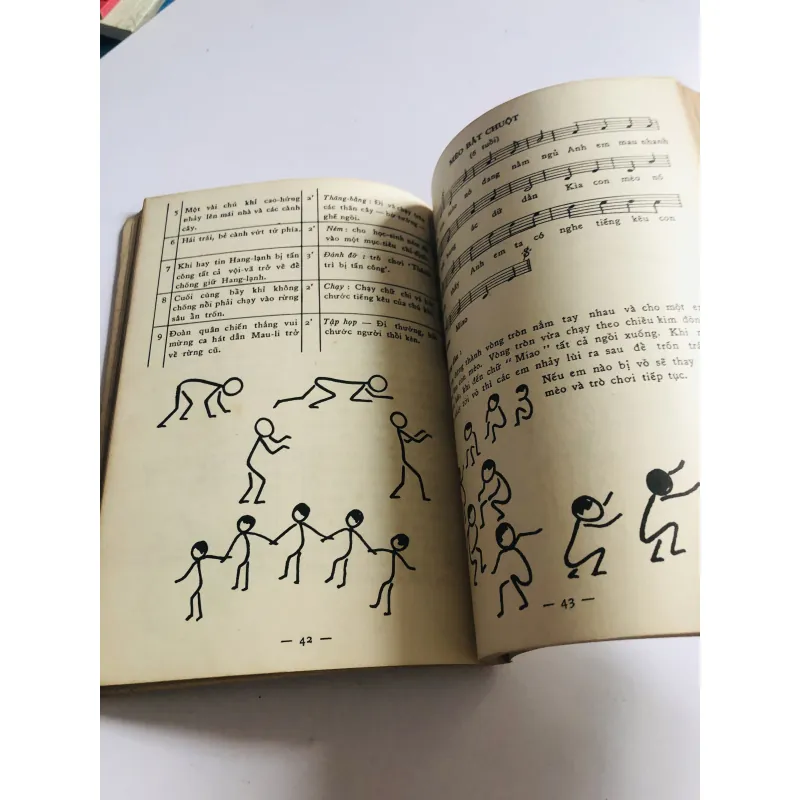 5 Một vài chú khỉ cao-hứng 2' Thăng-bằng : Đi và chạy trên
nhảy lên mái nhà và các cành các thân cây — bờ tường —
cây. ghế ngồi.
6 Hái trái, bẻ cành vứt tứ phía. 2' Ném : cho học-sinh ném đá
vào một mục-tiêu chỉ-định.
7 Khi hay tin Hang-lạnh bị tấn 2' Đánh đỡ : trò chơi
công tất cả vội-vã trở về để trì bị tấn công".
chống giữ Hang-lạnh.
8 Cuối cùng bầy khỉ không 2' Chạy : Chạy chữ chi và
chống nổi phải chạy vào rừng chước tiếng kêu của
sâu ẩn trốn.
9 Đoàn quân chiến thắng vui 2' Tập họp — Đi thường,
mừng ca hát dẫn Mau-li trở chước người thổi kèn.
về rừng cũ.
— 42 —
MÈO BẮT CHUỘT
(8 tuổi)
nó đang nằm ngủ Anh em mau nhanh
ác dữ dằn Kia con mèo nó
đấy Anh em ta có nghe tiếng kêu con
Miao
thành vòng tròn nắm tay nhau và cho một em
con mèo. Vòng tròn vừa chạy theo chiều kim đồng
đến chữ “ Miao ” tất cả ngồi xuống. Khi
vỗ thì các em nhảy lùi ra sau để trốn
Nếu em nào bị vồ sẽ thay
mèo và trò chơi tiếp tục.
— 43 —